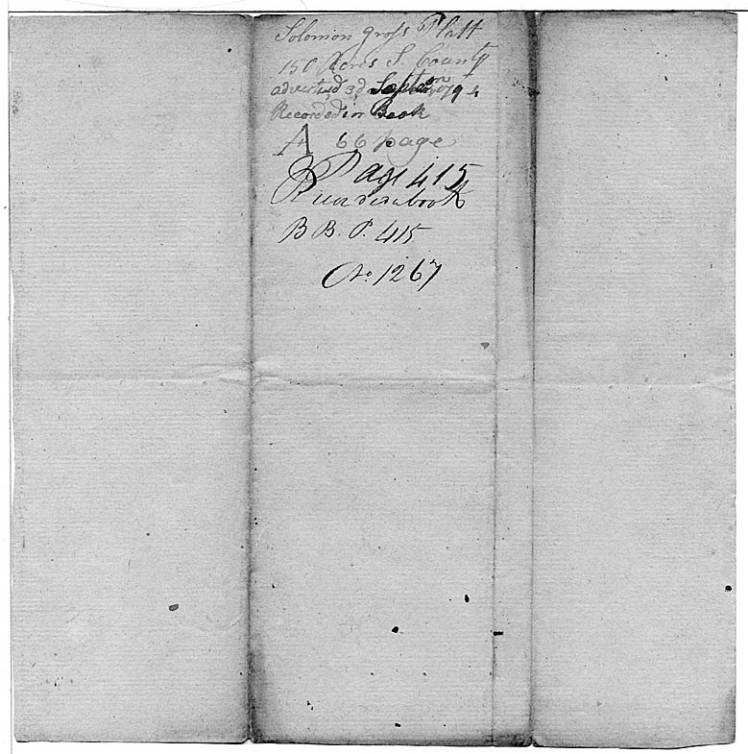 Solomon Gross Platt
150 Acres S. County
advertised 3d Septem 1794
Recorded in Book
A 66 page
Page 415
Recorded in book
B B. P. 415
No. 1267